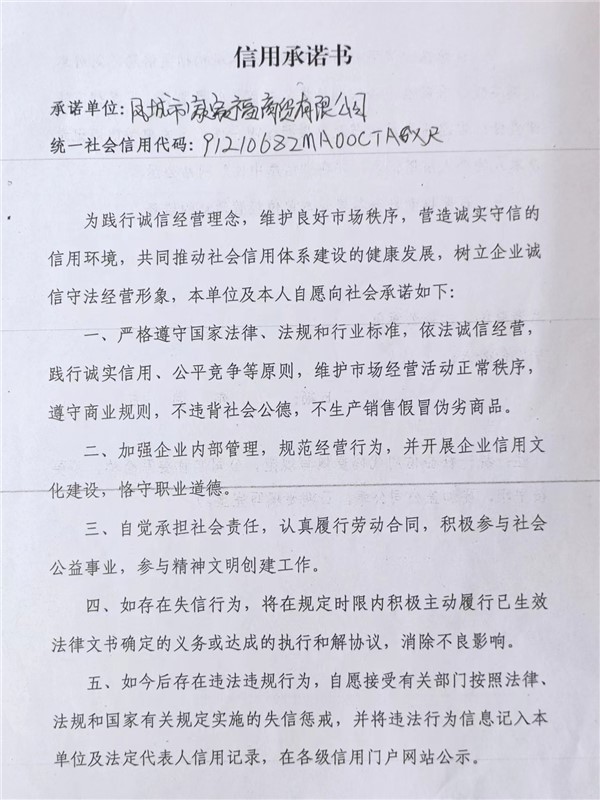 信用承诺书
承诺单位:凤城市家富商贸有限公司
统一社会信用代码:91210682MA00CTA6XR
为践行诚信经营理念，维护良好市场秩序，营造诚实守信的
信用环境，共同推动社会信用体系建设的健康发展，树立企业诚
信守法经营形象，本单位及本人自愿向社会承诺如下:
一、严格遵守国家法律、法规和行业标准，依法诚信经营，
践行诚实信用、公平竞争等原则，维护市场经营活动正常秩序，
遵守商业规则，不违背社会公德，不生产销售假冒伪劣商品。
二、加强企业内部管理，规范经营行为，并开展企业信用文
化建设，恪守职业道德。
三、自觉承担社会责任，认真履行劳动合同，积极参与社会
公益事业，参与精神文明创建工作。
四、如存在失信行为，将在规定时限内积极主动履行已生效
法律文书确定的义务或达成的执行和解协议，消除不良影响。
五、如今后存在违法违规行为，自愿接受有关部门按照法律、
法规和国家有关规定实施的失信惩戒，并将违法行为信息记入本
单位及法定代表人信用记录，在各级信用门户网站公示。